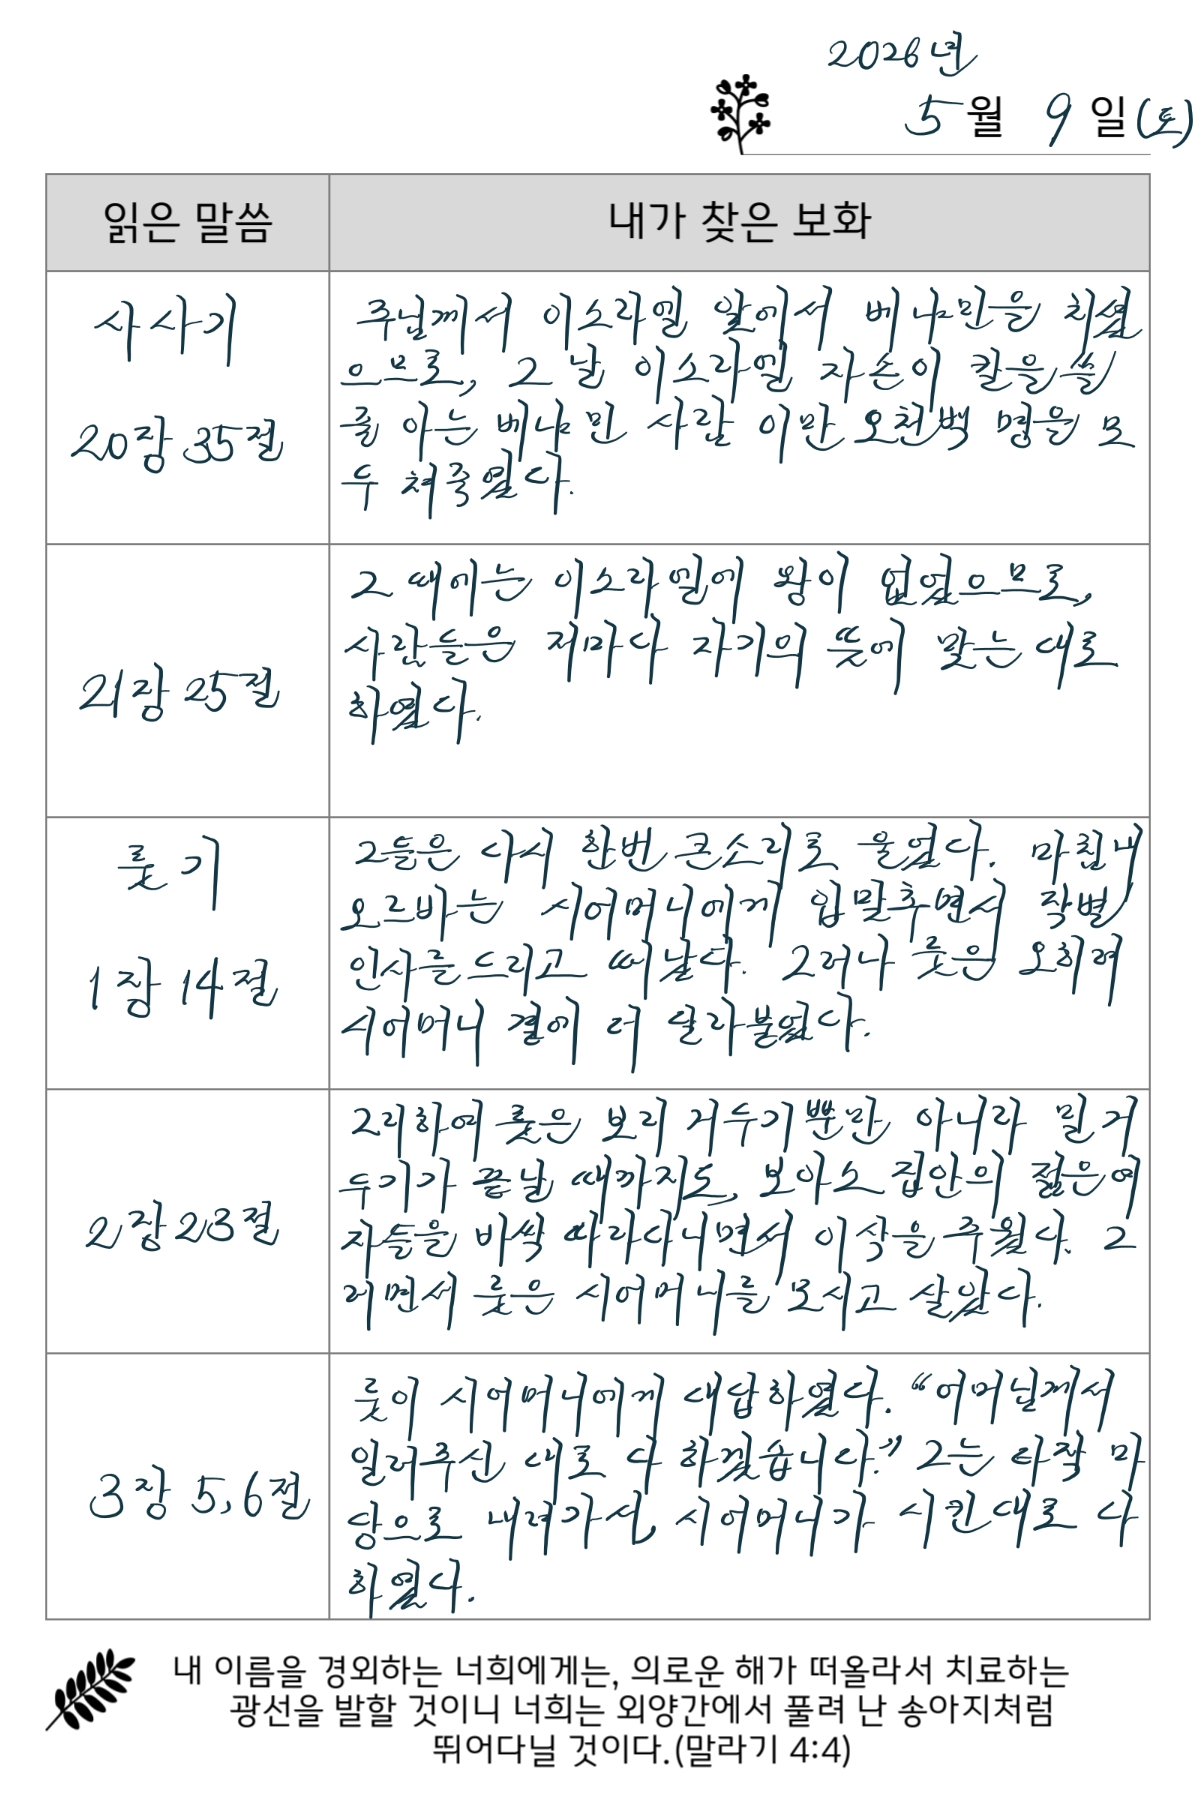 2026년
5월 9일(토)
읽은 말씀
내가 찾은 보화
사사기
20장 35절
주님께서 이스라엘 앞에서 베냐민을 치셨
으므로, 그 날 이스라엘 자손이 칼을 쓸
줄 아는 베냐민 사람 이만 오천백 명을 모
두 쳐죽였다.
21장 25절
그 때에는 이스라엘에 왕이 없었으므로,
사람들은 저마다 자기의 뜻에 맞는 대로
하였다.
룻기
1장 14절
그들은 다시 한번 큰소리로 울었다. 마침내
오르바는 시어머니에게 입맞추면서 작별
인사를 드리고 떠났다. 그러나 룻은 오히려
시어머니 곁에 더 달라붙었다.
2장 23절
그리하여 룻은 보리 거두기뿐만 아니라 밀 거
두기가 끝날 때까지도, 보아스 집안의 젊은 여
자들을 바싹 따라다니면서 이삭을 주웠다. 그
러면서 룻은 시어머니를 모시고 살았다.
3장 5,6절
룻이 시어머니에게 대답하였다. “어머님께서
일러주신 대로 다 하겠습니다.” 그는 타작 마
당으로 내려가서, 시어머니가 시킨대로 다
하였다.
내 이름을 경외하는 너희에게는, 의로운 해가 떠올라서 치료하는
광선을 발할 것이니 너희는 외양간에서 풀려 난 송아지처럼
뛰어다닐 것이다.(말라기 4:4)